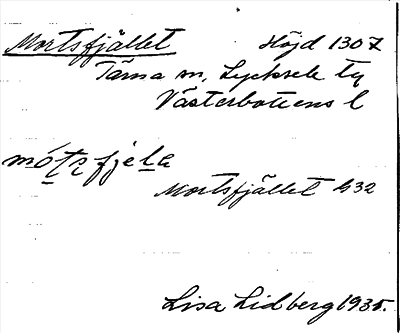 Mortsfjället Höjd 1307
Tärna sn, Lycksele tg
Västerbottens l
mótsfjela
Mortsfjället h32
Lisa Lidberg 1935.